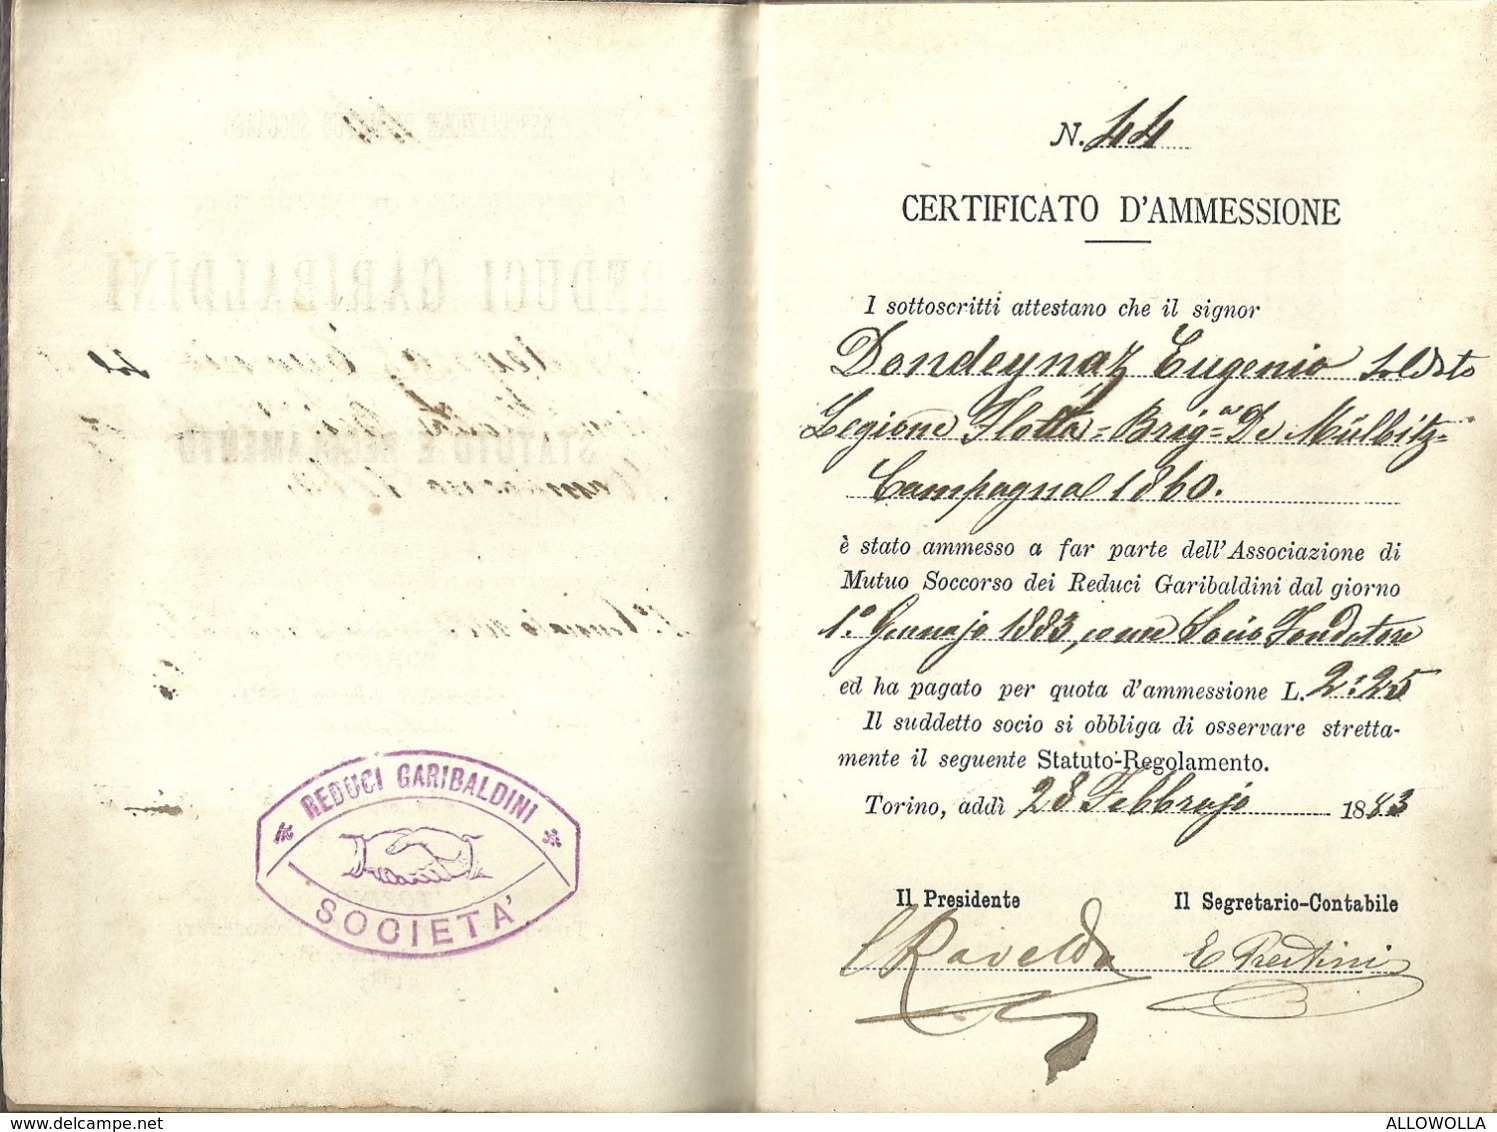 REDUCI GARIBALDINI
SOCIETÀ
N. 44
CERTIFICATO D'AMMESSIONE
I sottoscritti attestano che il signor
Dondeynaz Eugenio Soldato
Legione Flotta = Brig.ª De Mülbitz =
Campagna 1860.
è stato ammesso a far parte dell'Associazione di
Mutuo Soccorso dei Reduci Garibaldini dal giorno
1.° Gennajo 1883, come Socio Fondatore
ed ha pagato per quota d'ammessione L. 2:25
Il suddetto socio si obbliga di osservare stretta-
mente il seguente Statuto-Regolamento.
Torino, addì 28 Febbrajo 1883
Il Presidente Il Segretario-Contabile
delcampe.net
ALLOWOLLA